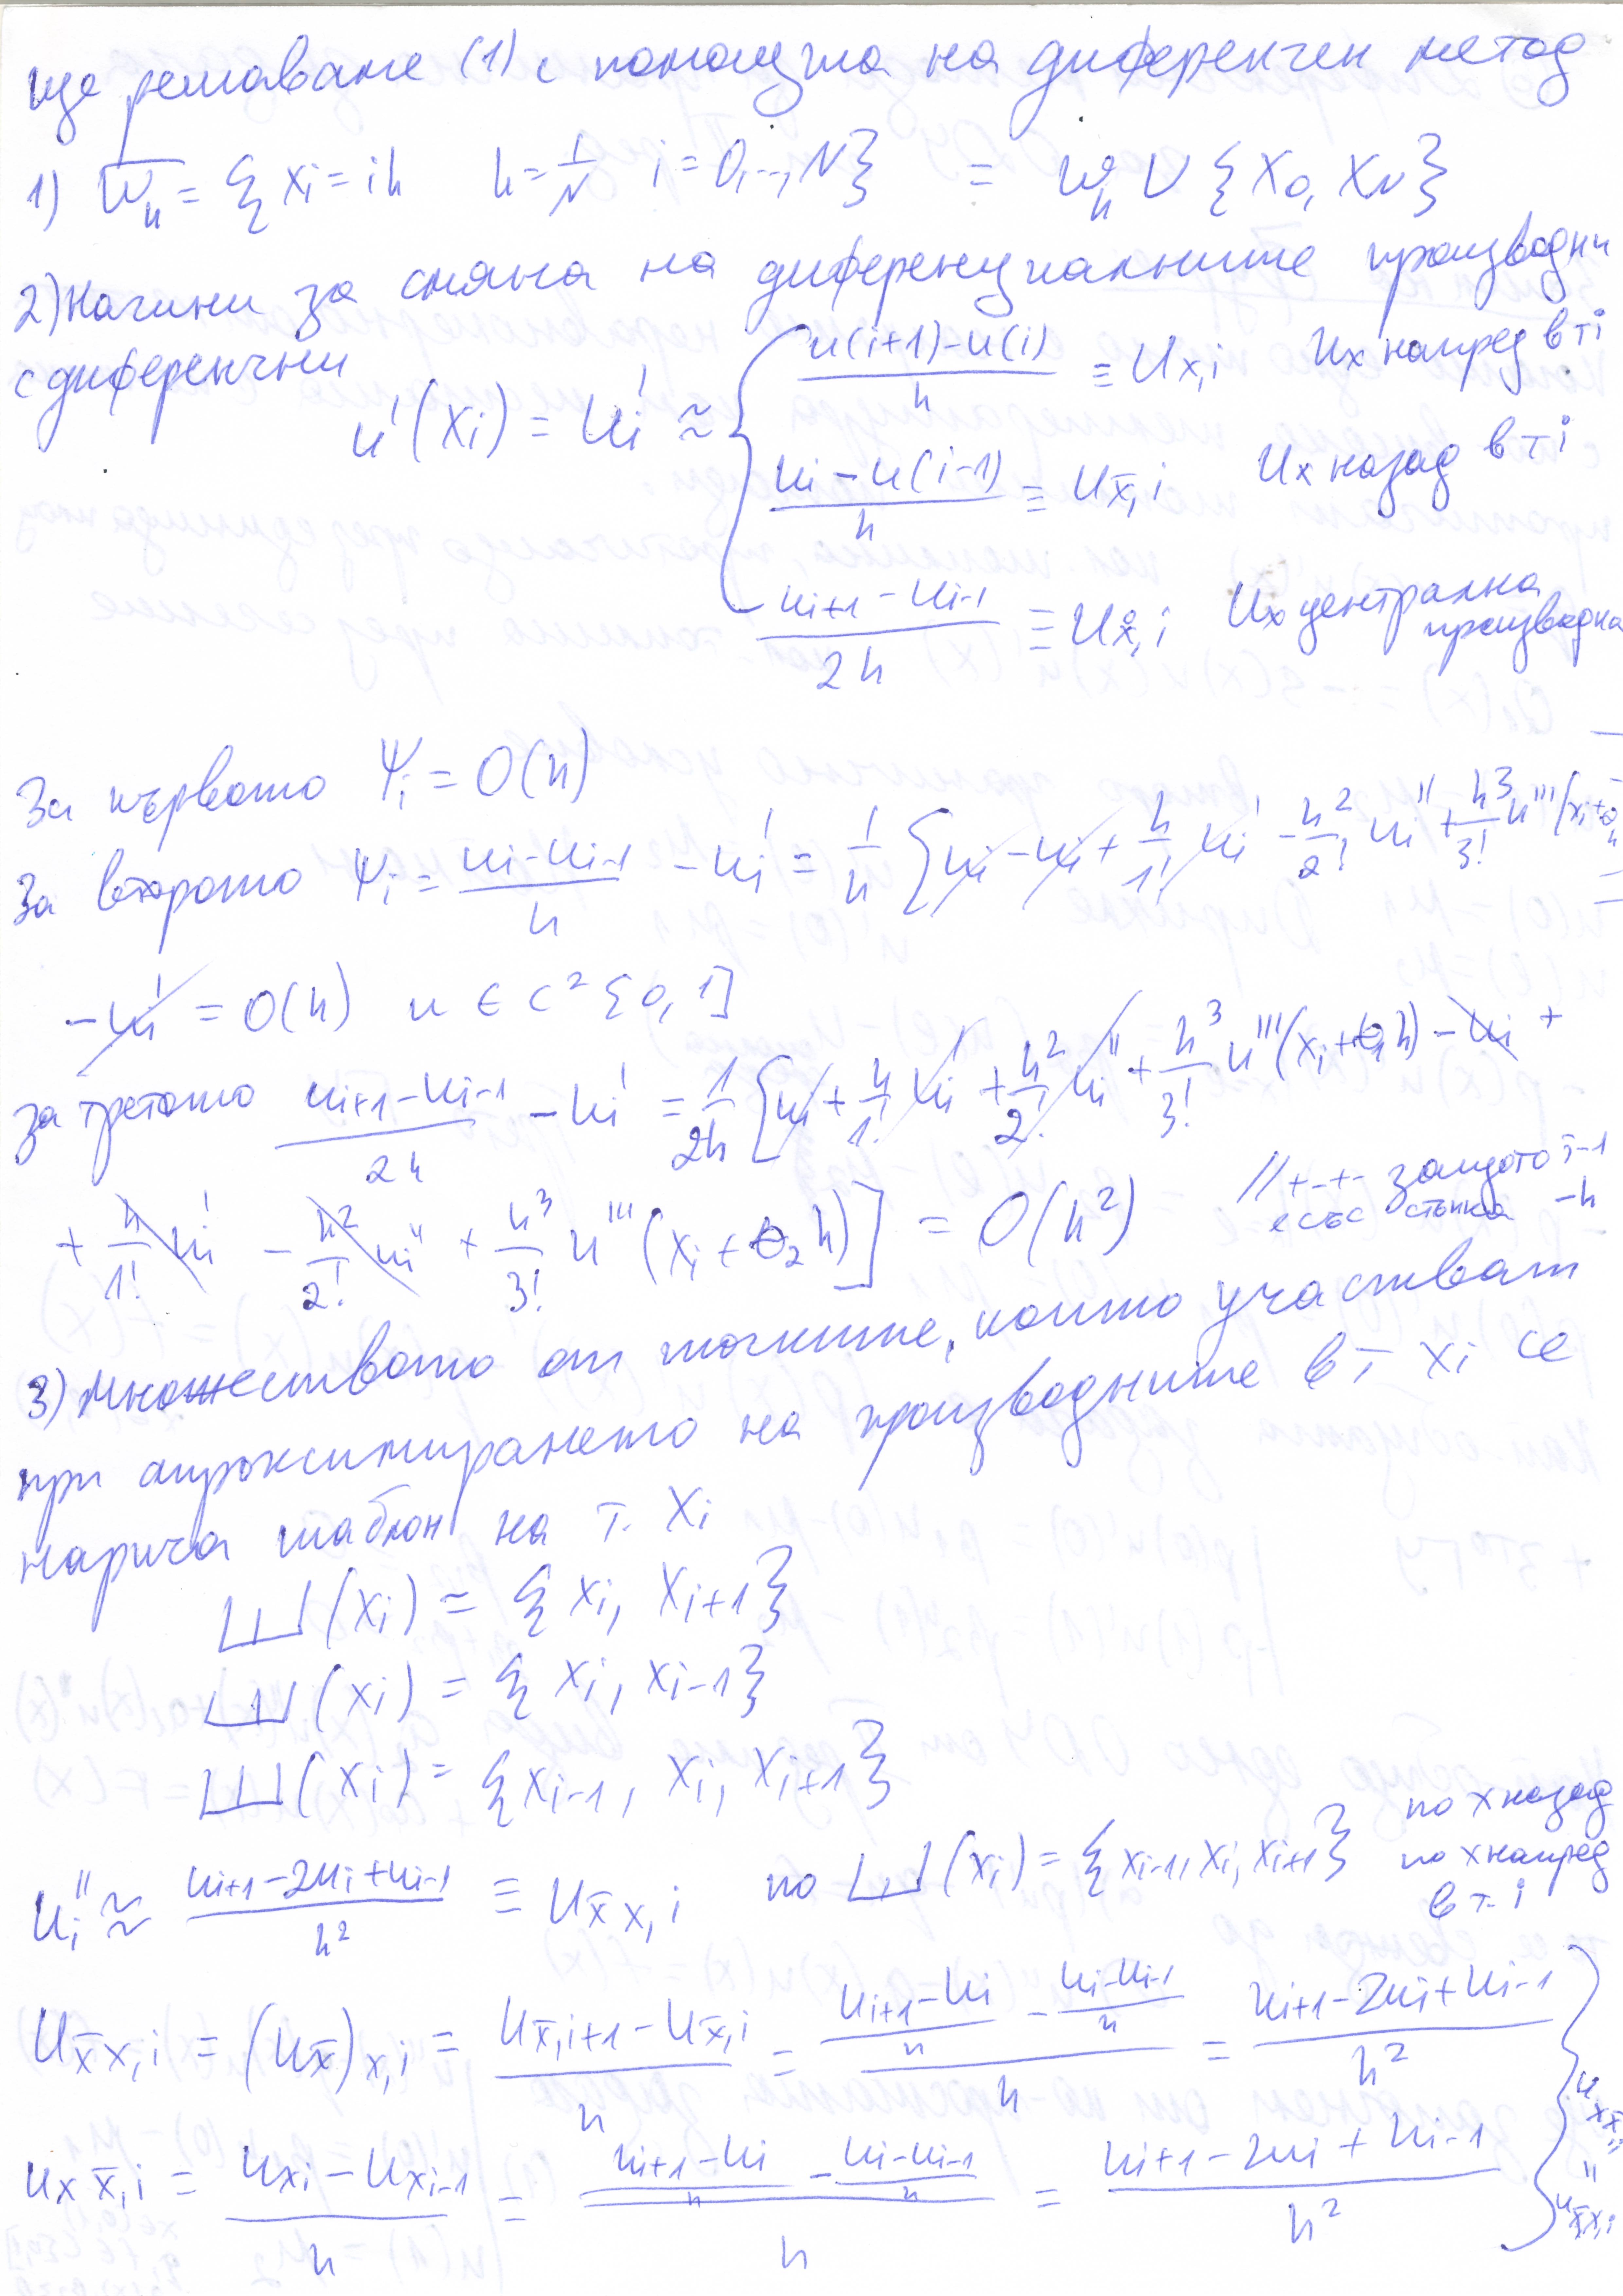 ще решаваме (1) с помощта на диференчен метод
1) w̅ₕ = { xᵢ = ih   h = 1/N   i = 0,..,N } = ẘₕ ∪ {x₀, x_N}
2) Начини за смяна на диференциалните производни
с диференчни
u'(xᵢ) = uᵢ' ≈ {
(u(i+1) - u(i))/h ≡ u_{x,i}   Ux напред в т i
(uᵢ - u(i-1))/h ≡ u_{x̄,i}   Ux назад в т i
(uᵢ₊₁ - uᵢ₋₁)/2h ≡ u_{x̊,i}   Ux централна производна
За първото Ψᵢ = O(h)
За второто Ψᵢ = (uᵢ - uᵢ₋₁)/h - uᵢ' = 1/h { uᵢ - uᵢ + h/1! uᵢ' - h²/2! uᵢ'' + h³/3! u'''(xᵢ+θ
- uᵢ' = O(h)   u ∈ C² {0,1]
за третото (uᵢ₊₁ - uᵢ₋₁)/2h - uᵢ' = 1/2h [ uᵢ + h/1! uᵢ' + h²/2! uᵢ'' + h³/3! u'''(xᵢ+θ₁h) - uᵢ +
+ h/1! uᵢ' - h²/2! uᵢ'' + h³/3! u'''(xᵢ+θ₂h) ] = O(h²)   // +-+- защото i-1
е със стъпка -h
3) Множеството от точките, които участват
при апроксимирането на производните в т xᵢ се
нарича шаблон на т. xᵢ
Ш(xᵢ) = {xᵢ, xᵢ₊₁}
Ш(xᵢ) = {xᵢ, xᵢ₋₁}
Ш(xᵢ) = {xᵢ₋₁, xᵢ, xᵢ₊₁}
uᵢ'' ≈ (uᵢ₊₁ - 2uᵢ + uᵢ₋₁)/h² ≡ u_{x̄x,i}   по Ш(xᵢ) = {xᵢ₋₁, xᵢ, xᵢ₊₁}   по x назад
по x напред
в т. i
u_{x̄x,i} = (u_x̄)_{x,i} = (u_{x̄,i+1} - u_{x̄,i})/h = ((uᵢ₊₁ - uᵢ)/h - (uᵢ - uᵢ₋₁)/h)/h = (uᵢ₊₁ - 2uᵢ + uᵢ₋₁)/h²
u_{xx̄,i} = (u_{xi} - u_{xi-1})/h = ((uᵢ₊₁ - uᵢ)/h - (uᵢ - uᵢ₋₁)/h)/h = (uᵢ₊₁ - 2uᵢ + uᵢ₋₁)/h²
} u_{xx̄,i} = u_{x̄x,i}